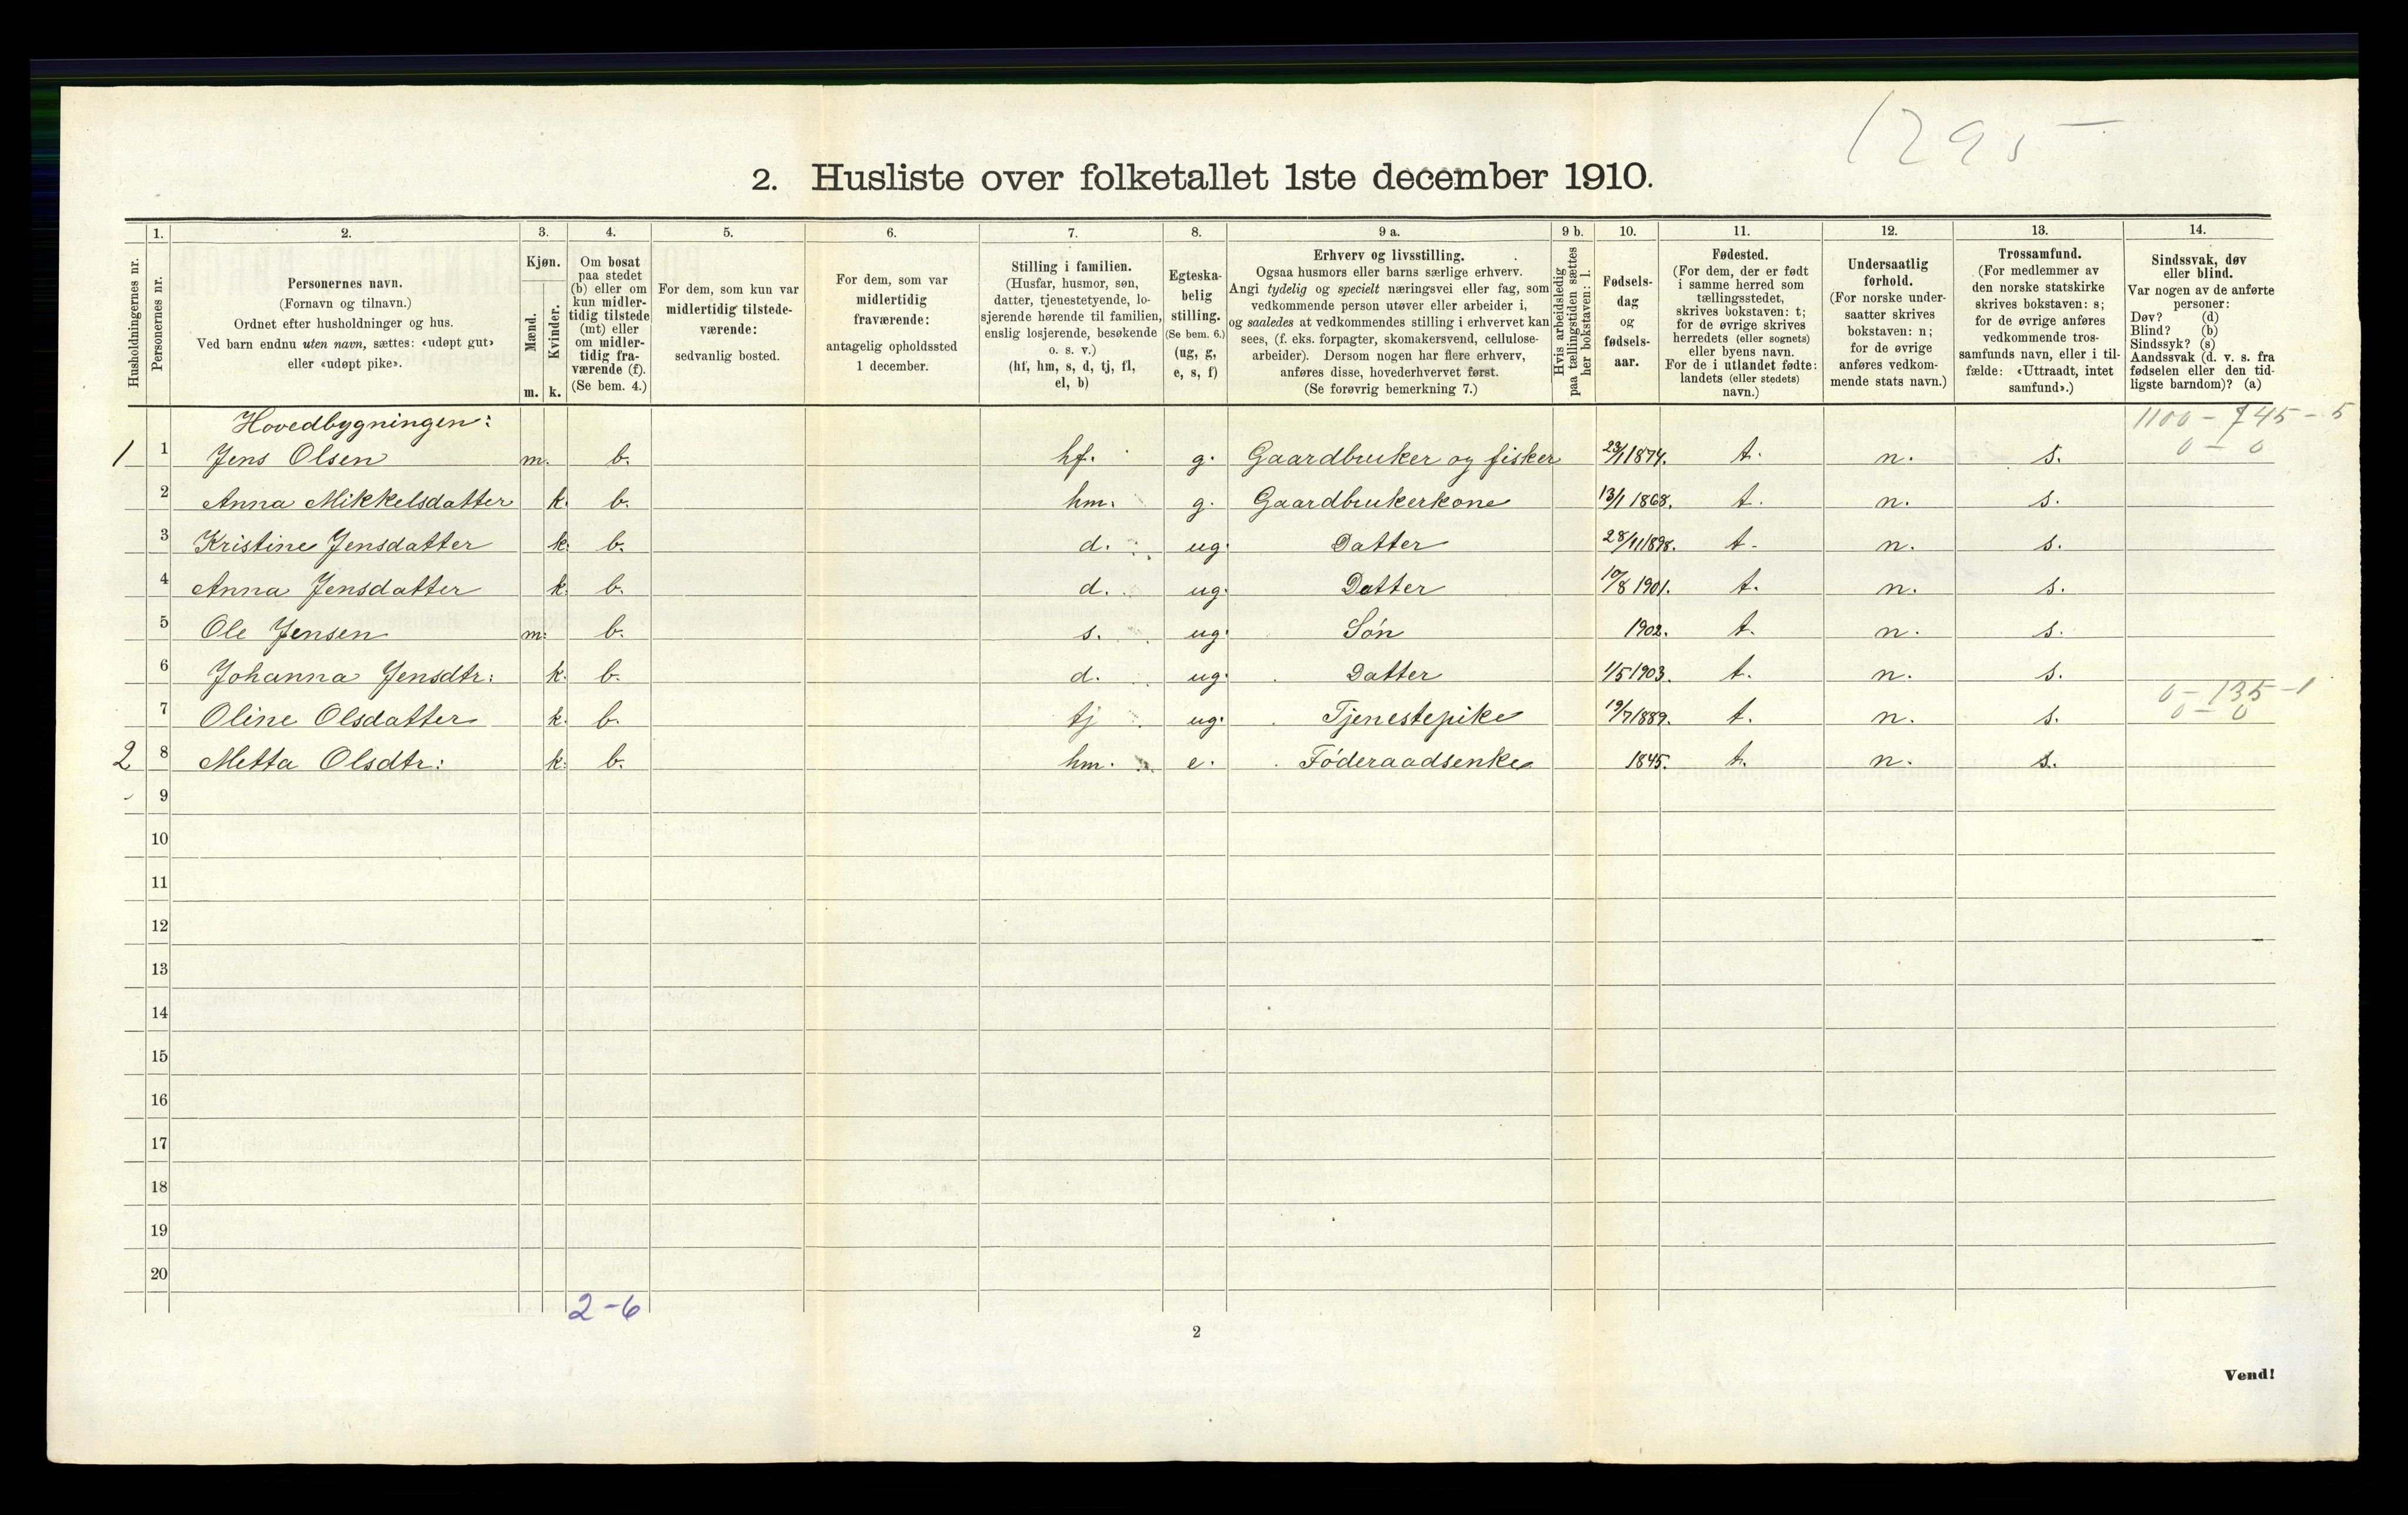 1295
2. Husliste over folketallet 1ste december 1910.
Husholdningernes nr.
1.
Personernes nr.
2.
Personernes navn.
(Fornavn og tilnavn.)
Ordnet efter husholdninger og hus.
Ved barn endnu uten navn, sættes: «udøpt gut»
eller «udøpt pike».
3.
Kjøn.
Mænd.
Kvinder.
m. k.
4.
Om bosat
paa stedet
(b) eller om
kun midler-
tidig tilstede
(mt) eller
om midler-
tidig fra-
værende (f).
(Se bem. 4.)
5.
For dem, som kun var
midlertidig tilstede-
værende:
sedvanlig bosted.
6.
For dem, som var
midlertidig
fraværende:
antagelig opholdssted
1 december.
7.
Stilling i familien.
(Husfar, husmor, søn,
datter, tjenestetyende, lo-
sjerende hørende til familien,
enslig losjerende, besøkende
o. s. v.)
(hf, hm, s, d, tj, fl,
el, b)
8.
Egteska-
belig
stilling.
(Se bem. 6.)
(ug, g,
e, s, f)
9 a.
Erhverv og livsstilling.
Ogsaa husmors eller barns særlige erhverv.
Angi tydelig og specielt næringsvei eller fag, som
vedkommende person utøver eller arbeider i,
og saaledes at vedkommendes stilling i erhvervet kan
sees, (f. eks. forpagter, skomakersvend, cellulose-
arbeider). Dersom nogen har flere erhverv,
anføres disse, hovederhvervet først.
(Se forøvrig bemerkning 7.)
9 b.
Hvis arbeidsledig
paa tællingstiden sættes
her bokstaven: l.
10.
Fødsels-
dag
og
fødsels-
aar.
11.
Fødested.
(For dem, der er født
i samme herred som
tællingsstedet,
skrives bokstaven: t;
for de øvrige skrives
herredets (eller sognets)
eller byens navn.
For de i utlandet fødte:
landets (eller stedets)
navn.)
12.
Undersaatlig
forhold.
(For norske under-
saatter skrives
bokstaven: n;
for de øvrige
anføres vedkom-
mende stats navn.)
13.
Trossamfund.
(For medlemmer av
den norske statskirke
skrives bokstaven: s;
for de øvrige anføres
vedkommende tros-
samfunds navn, eller i til-
fælde: «Uttraadt, intet
samfund».)
14.
Sindssvak, døv
eller blind.
Var nogen av de anførte
personer:
Døv? (d)
Blind? (b)
Sindssyk? (s)
Aandssvak (d. v. s. fra
fødselen eller den tid-
ligste barndom)? (a)
Hovedbygningen: 1100 - 745 - 5
1 1 Jens Olsen m. b. hf. g. Gaardbruker og fisker 23/1 1874. t. n. s. 0 - 0
2 Anna Mikkelsdatter k. b. hm. g. Gaardbrukerkone 13/1 1868. t. n. s.
3 Kristine Jensdatter k. b. d. ug. Datter 28/11 1898. t. n. s.
4 Anna Jensdatter k. b. d. ug. Datter 10/8 1901. t. n. s.
5 Ole Jensen m. b. s. ug. Søn 1902. t. n. s.
6 Johanna Jensdtr: k. b. d. ug. Datter 1/5 1903. t. n. s.
0 - 135 - 1
7 Oline Olsdatter k. b. tj ug. Tjenestepike 19/7 1889. t. n. s. 0 - 0
2 8 Metta Olsdtr: k. b. hm. e. Føderaadsenke 1845. t. n. s.
9
10
11
12
13
14
15
16
17
18
19
20
2-6
2
Vend!